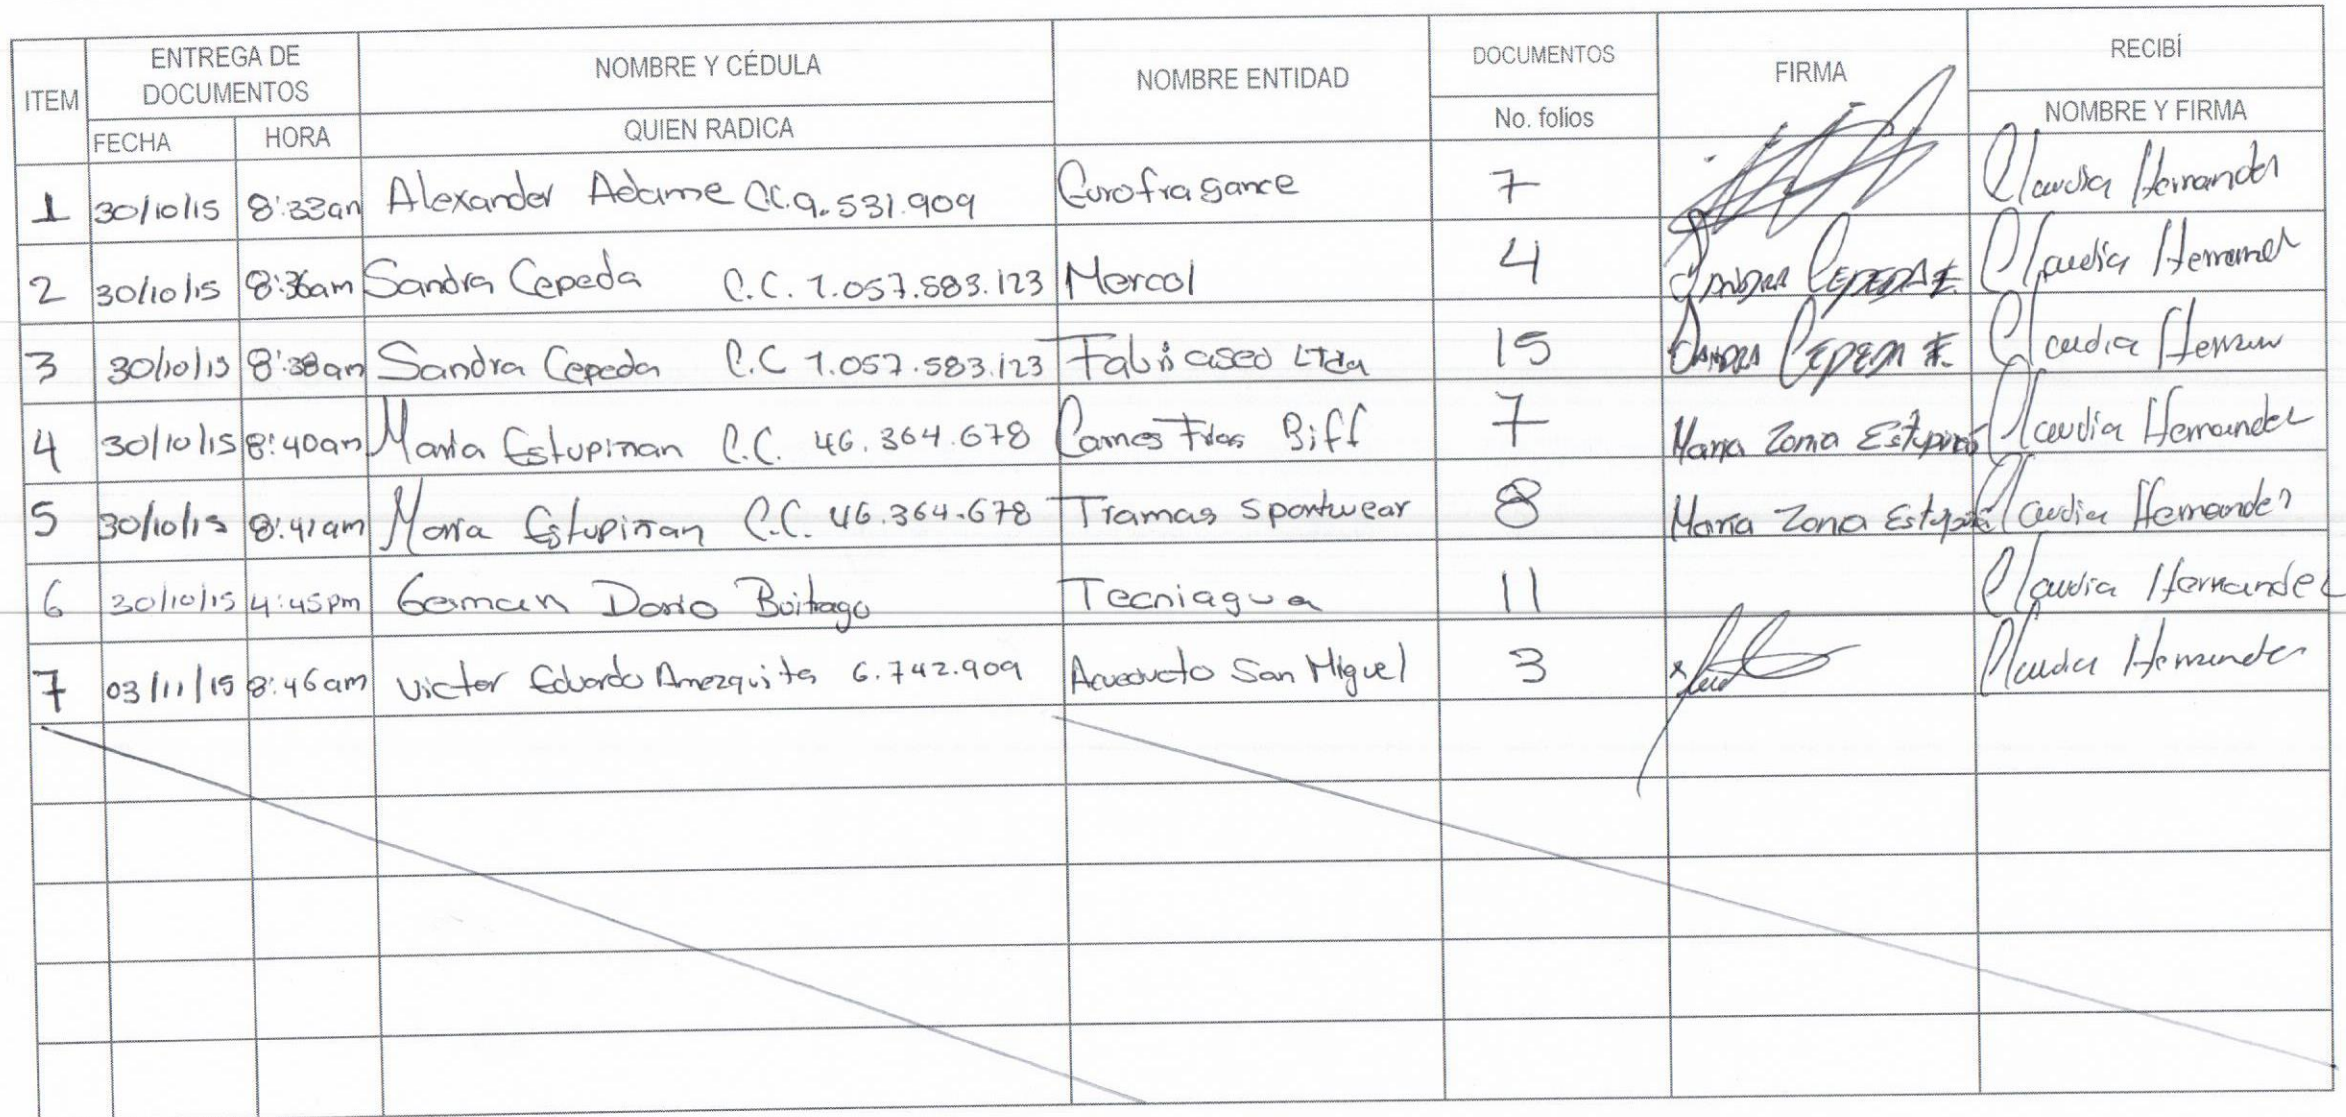 ITEM ENTREGA DE DOCUMENTOS NOMBRE Y CÉDULA NOMBRE ENTIDAD DOCUMENTOS FIRMA RECIBÍ
FECHA HORA QUIEN RADICA No. folios NOMBRE Y FIRMA
1 30/10/15 8:33am Alexander Adame C.C.9.531.909 Eurofragance 7 Claudia Hernandez
2 30/10/15 8:36am Sandra Cepeda C.C. 1.057.583.123 Mercol 4 Sandra Cepeda E. Claudia Hernandez
3 30/10/15 8:38am Sandra Cepeda C.C 1.057.583.123 Fabriaseo LTda 15 Sandra Cepeda E. Claudia Hernan
4 30/10/15 8:40am Maria Estupiñan C.C. 46.364.678 Carnes Frias Biff 7 Maria Estupiñá Claudia Hernandez
5 30/10/15 8:41am Maria Estupiñan C.C. 46.364.678 Tramas Sportwear 8 Maria Claudia Hernandez
6 30/10/15 4:45pm German Dario Buitrago Tecniagua 11 Claudia Hernandez
7 03/11/15 8:46am Victor Eduardo Amezquita 6.742.909 Acueducto San Miguel 3 Claudia Hernandez